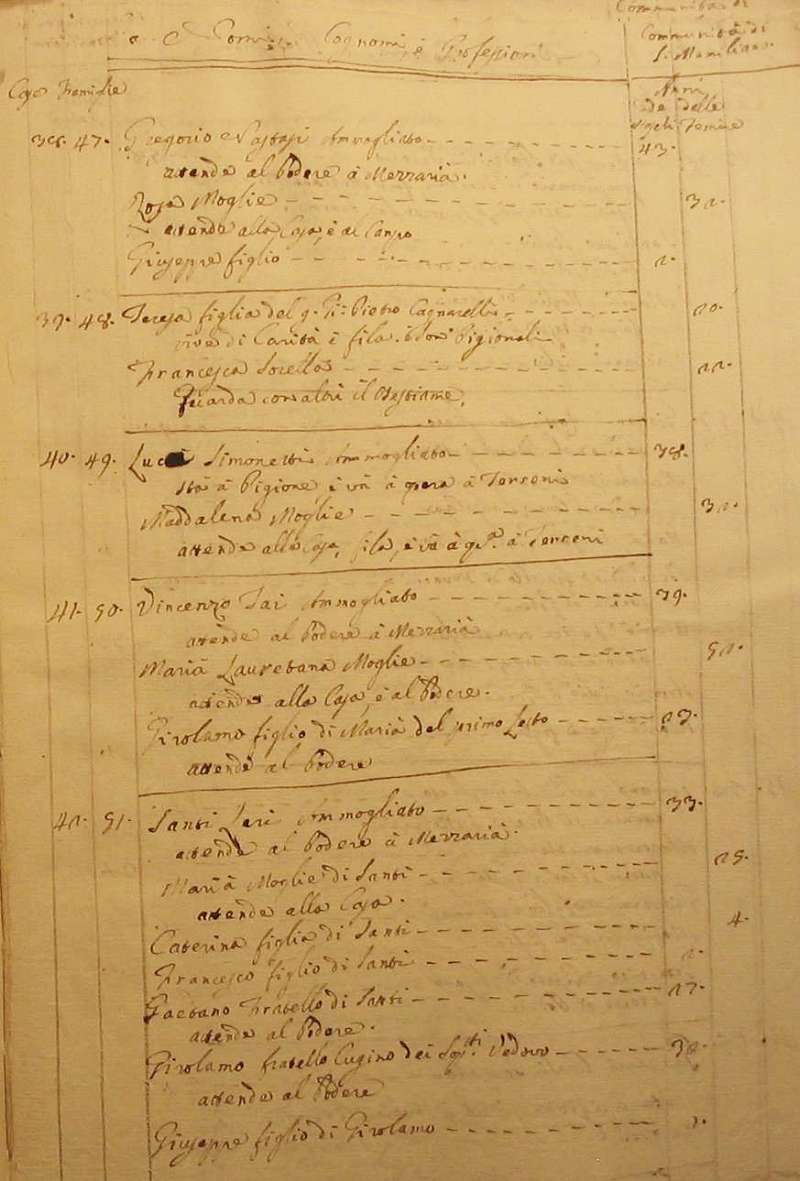 Nomi, Cognomi, e Professioni
Communità di
Communità di
S. Mamiliano
Case Famiglie
Anni
de delle
Femine
38. 47. Gregorio Nastasi Ammogliato 43.
attende al Podere à Mezzaria.
Rosa Moglie
attende alla Casa, è al Campo
Giuseppe figlio
39. 48. Teresa figlia del q. Gio: Pietro Cagnarelli
vive di Carità è fila. Pigionali
Francesca Sorella
Guarda con altri il Bestiame.
40. 49. Simonetti Ammogliato 38.
Stà à Pigione, è và à opera à Torroni
Maddalena Moglie
attende alla Casa, fila, è và à à Torroni
41. 50. Vincenzo Tai Ammogliato 39.
attende al Podere à Mezzaria
Maria Lauretana Moglie
attende alla Casa, è al Podere.
Girolamo figlio di Maria del primo Letto
attende al Podere
42. 51. Santi Ammogliato 33.
attende al Podere à Mezzaria.
Maria Moglie di Santi
attende alla Casa.
Caterina figlia di Santi 4.
Francesco figlio di Santi
Gaetano Fratello di Santi
attende al Podere.
Girolamo fratello Cugino dei Sgti. Vedovo
attende al Podere
Giuseppe figlio di Girolamo